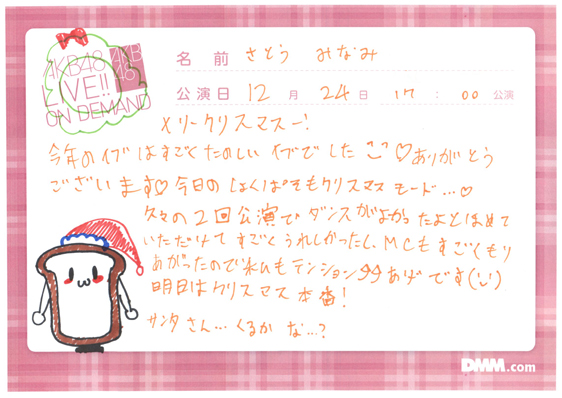 AKB48
LIVE!!
ON DEMAND
AKB
48
名前 さとう みなみ
公演日 12月24日 17:00 公演
メリークリスマスー!
今年のイブはすごくたのしいイブでした♡ありがとう
ございます♡今日のしょくぱんもクリスマスモード…♡
久々の2回公演でダンスがよかったよとほめて
いただけてすごくうれしかったし、MCもすごくもり
あがったので私もテンションアゲアゲです(ˊᵕˋ)
明日はクリスマス本番!
サンタさん…くるかな…?
DMM.com